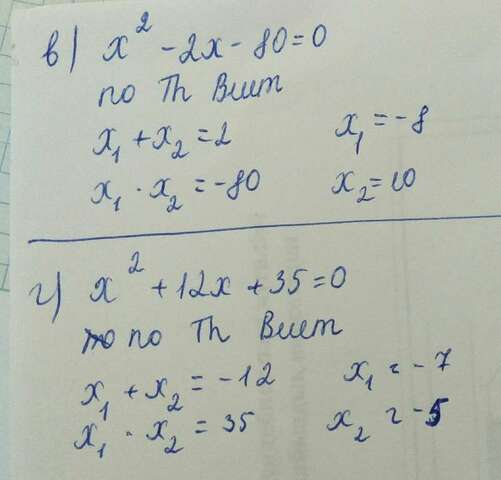 в) x² - 2x - 80 = 0
по Th Виет
x₁ + x₂ = 2 x₁ = -8
x₁ · x₂ = -80 x₂ = 10
г) x² + 12x + 35 = 0
по Th Виет
x₁ + x₂ = -12 x₁ = -7
x₁ · x₂ = 35 x₂ = -5